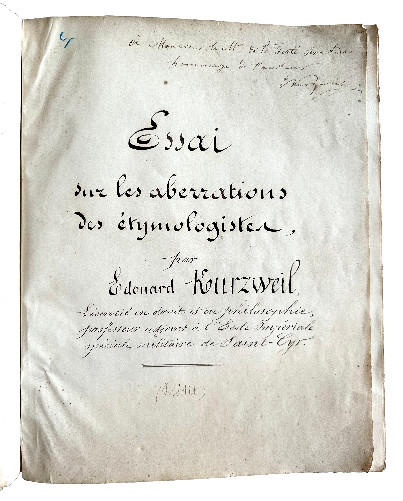 à Monsieur de
hommage de l'auteur
Essai
sur les aberrations
des étymologistes,
par
Edouard Kurzweil,
Licencié en droit et en philosophie,
professeur adjoint à l'Ecole Impériale
spéciale militaire de Saint-Cyr.
(Inédit)